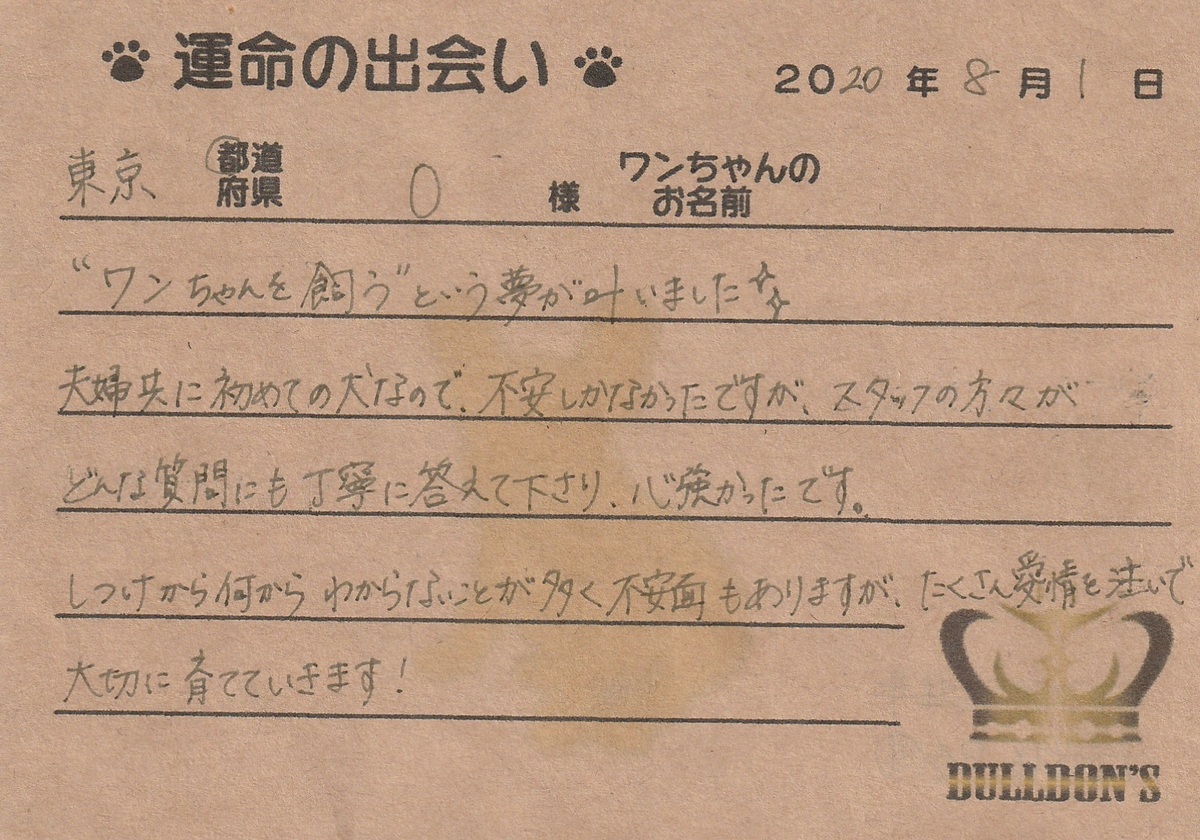 運命の出会い
2020年8月1日
東京 都道府県 O 様 ワンちゃんのお名前
“ワンちゃんを飼う”という夢が叶いました
夫婦共に初めての犬なので、不安しかなかったですが、スタッフの方々が
どんな質問にも丁寧に答えて下さり、心強かったです。
しつけから何からわからないことが多く不安面もありますが、たくさん愛情を注いで
大切に育てていきます!
BULLDON'S